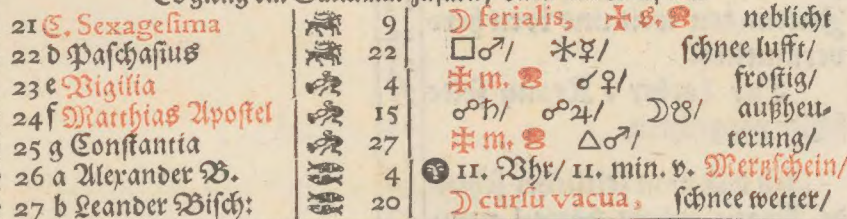 21 C. Sexagesima 9 ☽ ferialis, ✠ s. neblicht
22 d Paschasius 22 □♂/ ⚹☿/ schnee lufft/
23 e Vigilia 4 ✠ m. ☌♀/ frostig/
24 f Matthias Apostel 15 ☍♄/ ☍♃/ ☽☋/ außheu-
25 g Constantia 27 ✠ m. △♂/ terung/
26 a Alexander B. 4 11. Vhr/ 11. min. v. Mertzschein/
27 b Leander Bisch: 20 ☽ cursu vacua, schnee wetter/